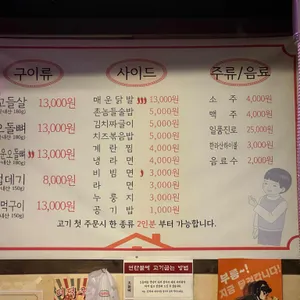 구이류 사이드 주류/음료
고들살 13,000원
오돌뼈 13,000원
운오돌뼈 13,000원
껍데기 8,000원
먹구이 13,000원
매운닭발 13,000원
촌놈들술밥 5,000원
김치짜글이 5,000원
치즈볶음밥 5,000원
계란찜 4,000원
냉라면 4,000원
비빔면 3,000원
라면 3,000원
누룽지 3,000원
공기밥 1,000원
소주 4,000원
맥주 4,000원
일품진로 25,000원
한라산하이볼 3,000원
음료수 2,000원
고기 첫 주문시 한 종류 2인분 부터 가능합니다.
연탄불에 고기굽는 방법